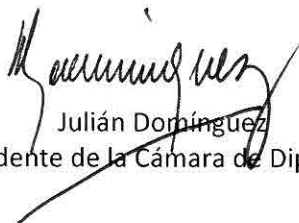 Julián Domínguez
dente de la Cámara de Dip